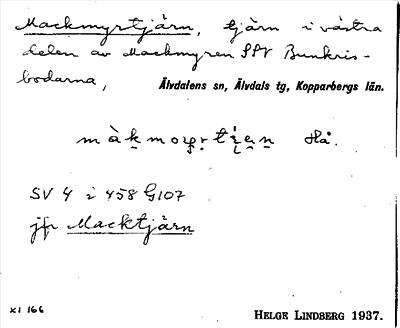 Mackmyrtjärn, tjärn i västra
delen av Mackmyren SSV Bunkris-
bodarna, Älvdalens sn, Älvdals tg, Kopparbergs län.
Hå.
SV 4 i 458 G107
jfr Macktjärn
XI 166
HELGE LINDBERG 1937.